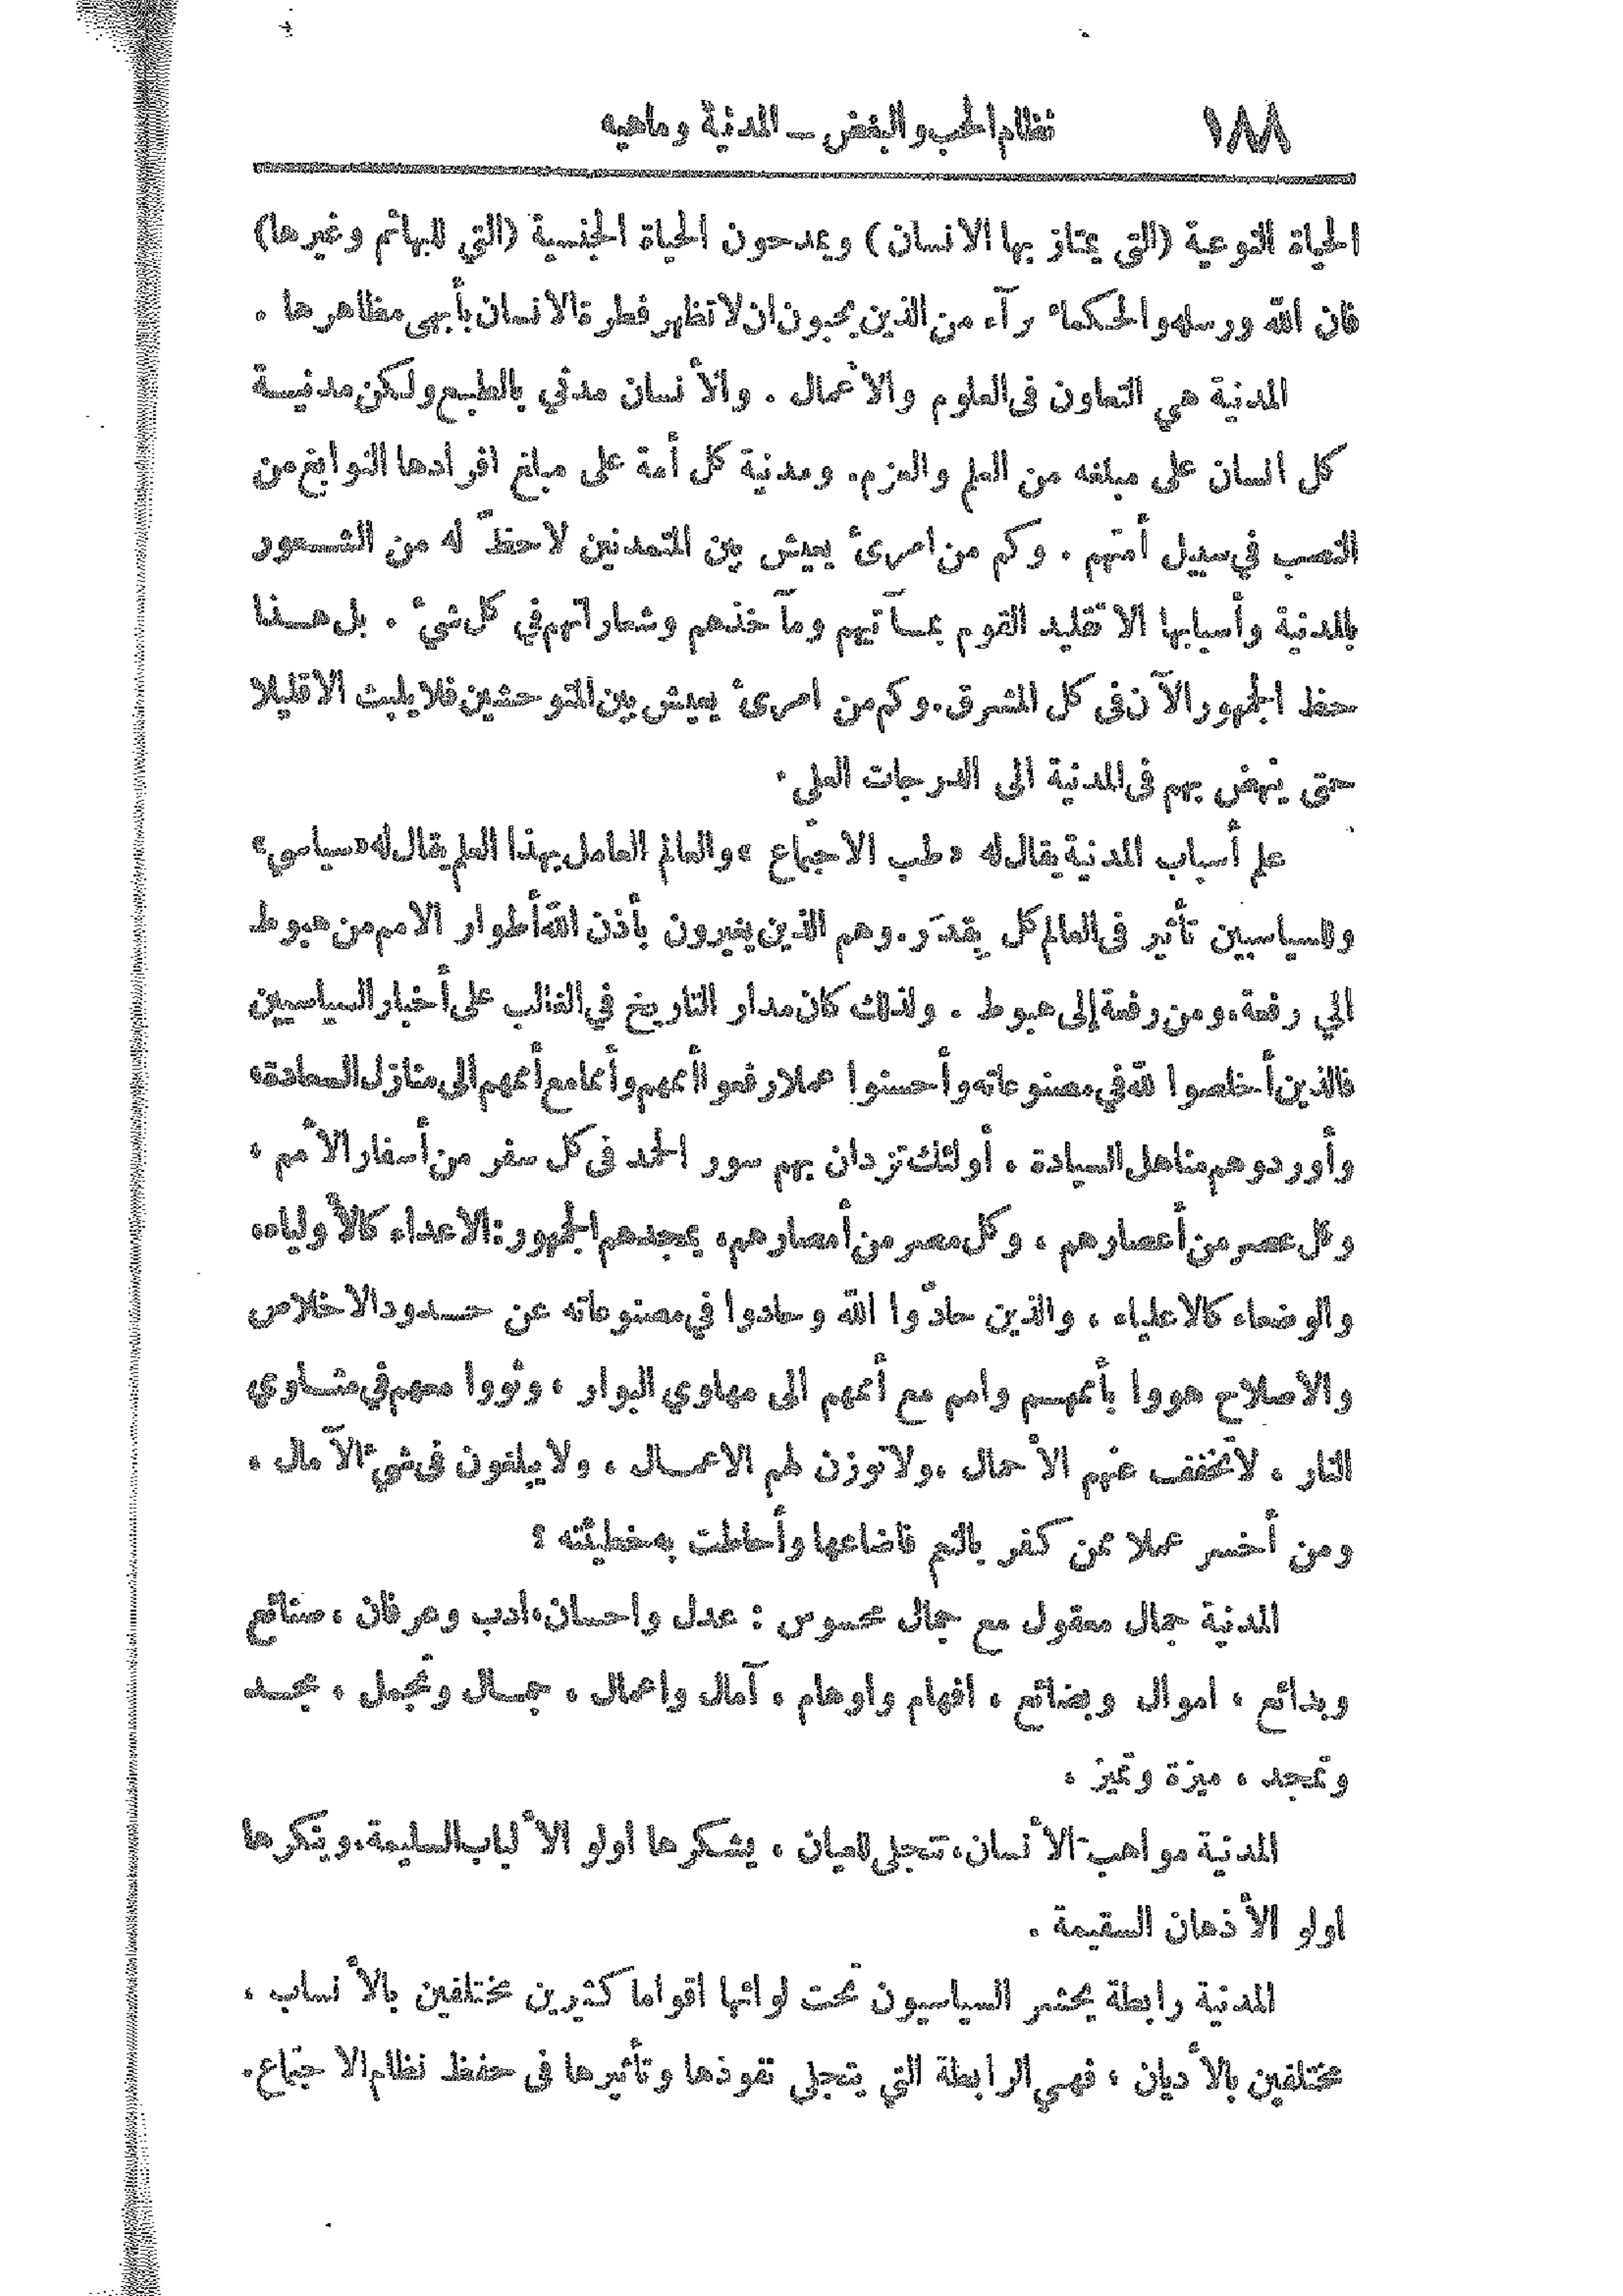 ١٨٨ نظام الحب والبغض ـ المدنية وماهيه
الحياة النوعية (التي يمتاز بها الانسان) ويمدحون الحياة الجنسية (التي للبهائم وغيرها)
فان الله ورسله والحكماء برآء من الذين يحبون ان لا تظهر فطرة الانسان بأبهى مظاهرها .
المدنية هي التعاون في العلوم والاعمال . والأنسان مدني بالطبع ولكن مدنيـة
كل انسان على مبلغه من العلم والعزم . ومدنية كل أمة على مبلغ افرادها النوابغ من
النصب في سبيل أمتهم . وكم من امرئ يعيش بين المتمدنين لاحظّ له من الشـعور
بالمدنية وأسبابها الا تقليد القوم بمـآتيهم ومآخذهم وشعاراتهم في كل شيء . بل هـذا
حظ الجمهور الآن في كل المشرق . وكم من امرئ يعيش بين المتوحشين فلا يلبث الا قليلا
حتى ينهض بهم في المدنية الى الدرجات العلى .
علم أسباب المدنية يقال له «طب الاجتماع» والعالم العامل بهذا العلم يقال له «سياسي»
وللسياسيين تأثير في العالم كل بقدَر . وهم الذين يغيرون بأذن الله أطوار الامم من هبوط
الي رفعة ، ومن رفعة إلى هبوط . ولذلك كان مدار التاريخ في الغالب على أخبار السياسيين
فالذين أخلصوا لله في مصنوعاته وأحسنوا عملا رفعوا أممهم وأمما مع أممهم الى منازل السعادة ،
وأوردوهم مناهل السيادة ، أولئك تزدان بهم سور الحمد في كل سفر من أسفار الأمم ،
وكل عصر من أعصارهم ، وكل مصر من أمصارهم ، يمجدهم الجمهور : الاعداء كالأولياء ،
والوضعاء كالاعلياء ، والذين حادّوا الله وحادوا في مصنوعاته عن حـدود الاخلاص
والاصلاح هووا بأممهـم وامم مع أممهم الى مهاوي البوار ، وثووا معهم في مثـاوي
النار ، لا تخفف عنهم الأحمال ، ولا توزن لهم الاعمـال ، ولا يبلغون في شيء الآمال ،
ومن أخسر عملا ممن كفر بالنعم فاضاعها وأحاطت به خطيئته ؟
المدنية جمال معقول مع جمال محسوس : عدل واحسان ، ادب وعرفان ، صنائع
وبدائع ، اموال وبضائع ، افهام واوهام ، آمال واعمال ، جمـال وتجمل ، مجـد
وتمجد ، ميزة وتميز ،
المدنية مواهب الأنسان ، تتجلى للعيان ، يشكرها اولو الألباب السليمة ، وينكرها
اولو الأذهان السقيمة .
المدنية رابطة يحشر السياسيون تحت لوائها اقواما كثيرين مختلفين بالأنساب ،
مختلفين بالأديان ، فهي الرابطة التي يتجلى نفوذها وتأثيرها في حفظ نظام الاجتماع .